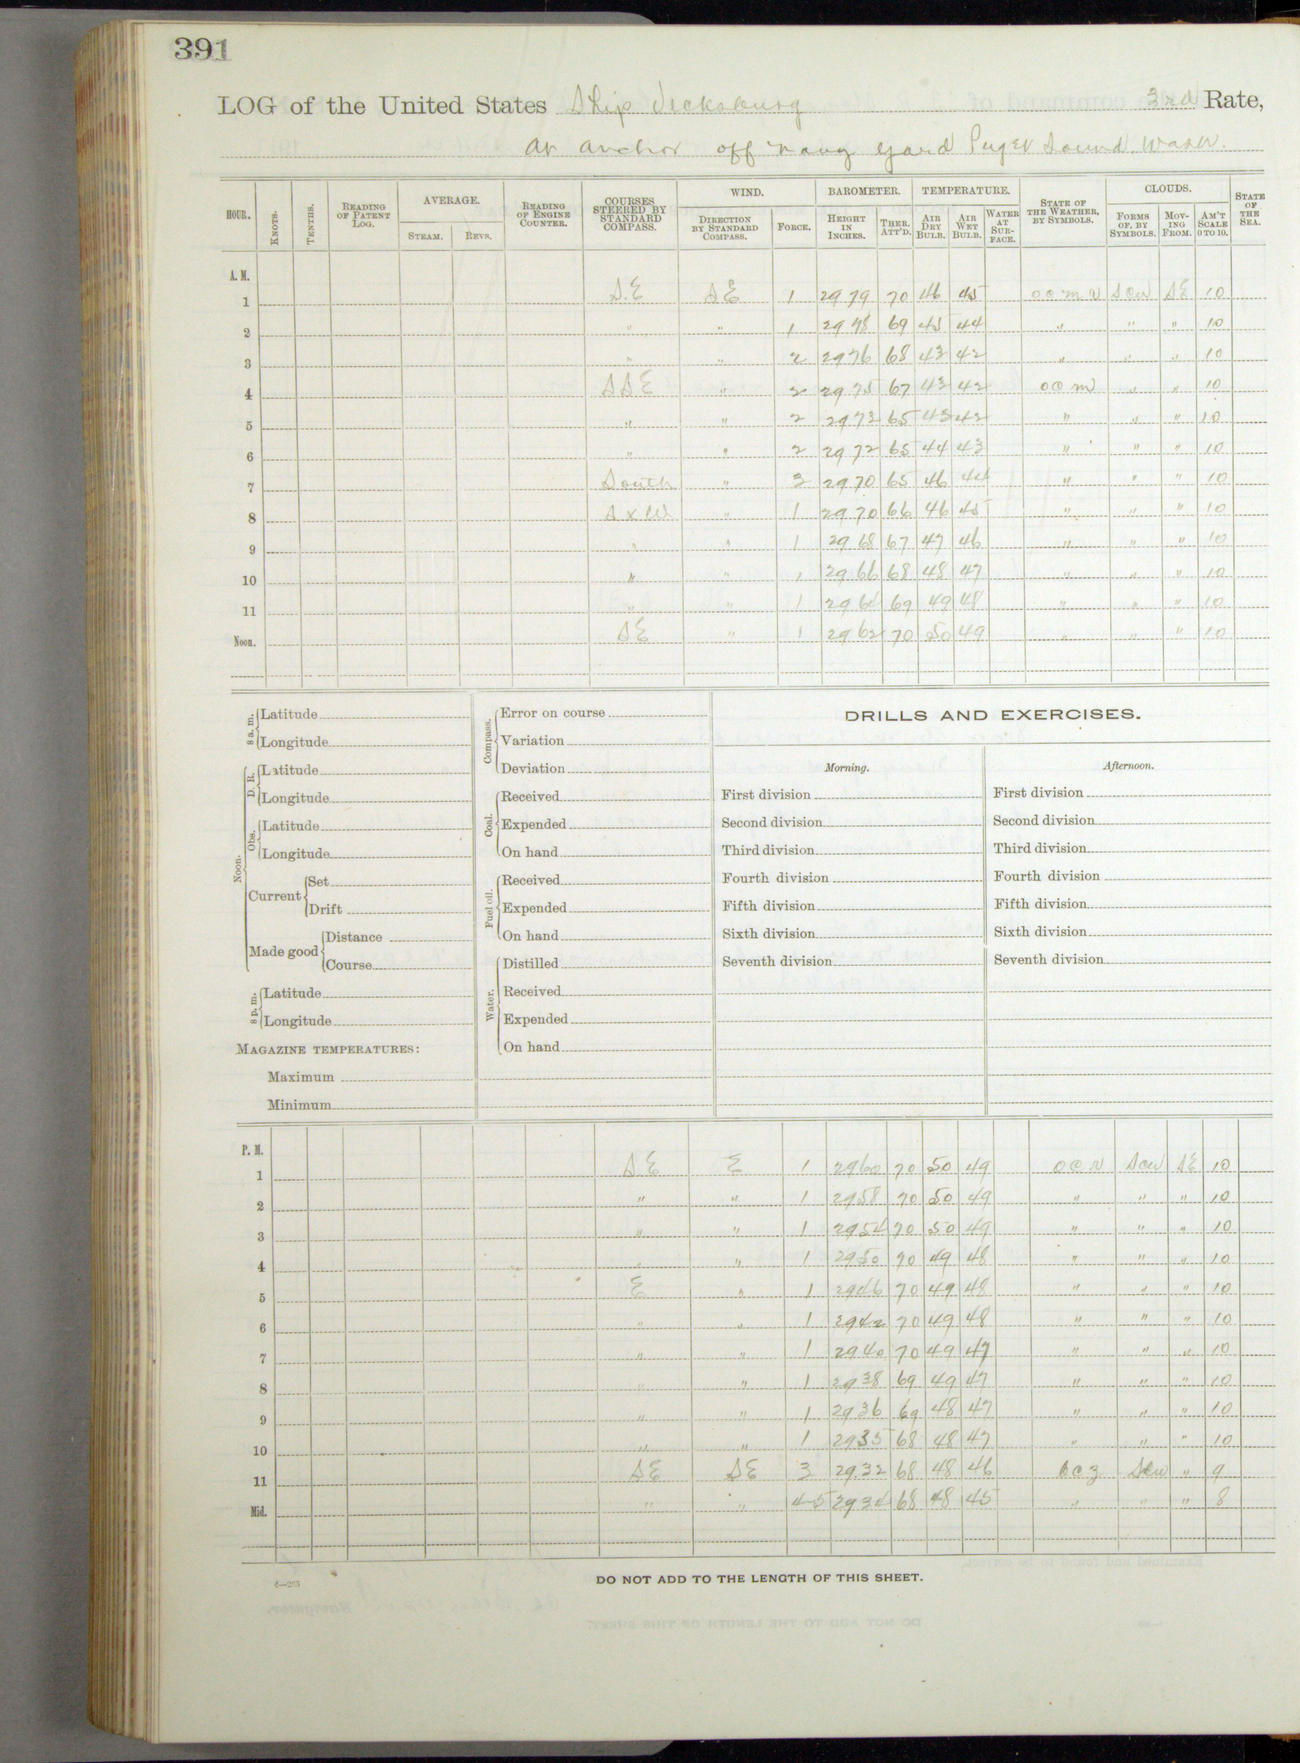 391
LOG of the United States Ship Vicksburg 3rd Rate,
At anchor off Navy Yard Puget Sound. Wash.
HOUR. KNOTS. TENTHS. READING OF PATENT LOG. AVERAGE. STEAM. REVS. READING OF ENGINE COUNTER. COURSES STEERED BY STANDARD COMPASS. WIND. DIRECTION BY STANDARD COMPASS. FORCE. BAROMETER. HEIGHT IN INCHES. THER. ATT'D. TEMPERATURE. AIR DRY BULB. AIR WET BULB. WATER AT SURFACE. STATE OF THE WEATHER, BY SYMBOLS. CLOUDS. FORMS OF, BY SYMBOLS. MOVING FROM. AM'T SCALE 0 TO 10. STATE OF THE SEA.
A. M.
1 S.E SE 1 29 79 70 46 45 o c m r Scu SE 10
2 " " 1 29 78 69 45 44 " " " 10
3 " " 2 29 76 68 43 42 " " " 10
4 SSE " 2 29 75 67 43 42 o c m " " 10
5 " " 2 29 73 65 43 42 " " " 10
6 " " 2 29 72 65 44 43 " " " 10
7 South " 3 29 70 65 46 44 " " " 10
8 S x W " 1 29 70 66 46 45 " " " 10
9 " " 1 29 68 67 47 46 " " " 10
10 " " 1 29 66 68 48 47 " " " 10
11 " " 1 29 64 69 49 48 " " " 10
Noon. SE " 1 29 62 70 50 49 " " " 10
8 a. m. Latitude
Longitude
Noon. D. R. Latitude
Longitude
Obs. Latitude
Longitude
Current Set
Drift
Made good Distance
Course
8 p. m. Latitude
Longitude
MAGAZINE TEMPERATURES:
Maximum
Minimum
Compass. Error on course
Variation
Deviation
Coal. Received
Expended
On hand
Fuel oil. Received
Expended
On hand
Water. Distilled
Received
Expended
On hand
DRILLS AND EXERCISES.
Morning. Afternoon.
First division First division
Second division Second division
Third division Third division
Fourth division Fourth division
Fifth division Fifth division
Sixth division Sixth division
Seventh division Seventh division
P. M.
1 SE E 1 29 60 70 50 49 o c r Scu SE 10
2 " " 1 29 58 70 50 49 " " " 10
3 " " 1 29 54 70 50 49 " " " 10
4 " " 1 29 50 70 49 48 " " " 10
5 E " 1 29 46 70 49 48 " " " 10
6 " " 1 29 42 70 49 48 " " " 10
7 " " 1 29 40 70 49 47 " " " 10
8 " " 1 29 38 69 49 47 " " " 10
9 " " 1 29 36 69 48 47 " " " 10
10 " " 1 29 35 68 48 47 " " " 10
11 SE SE 3 29.32 68 48 46 b c z Scu " 9
Mid. " " 4-5 29 34 68 48 45 " " " 8
6—265
DO NOT ADD TO THE LENGTH OF THIS SHEET.